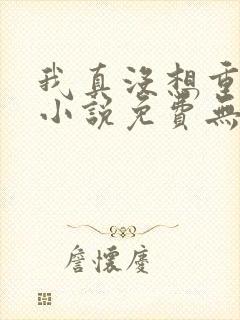 我真沒想重
小說免費無
詹懷慶